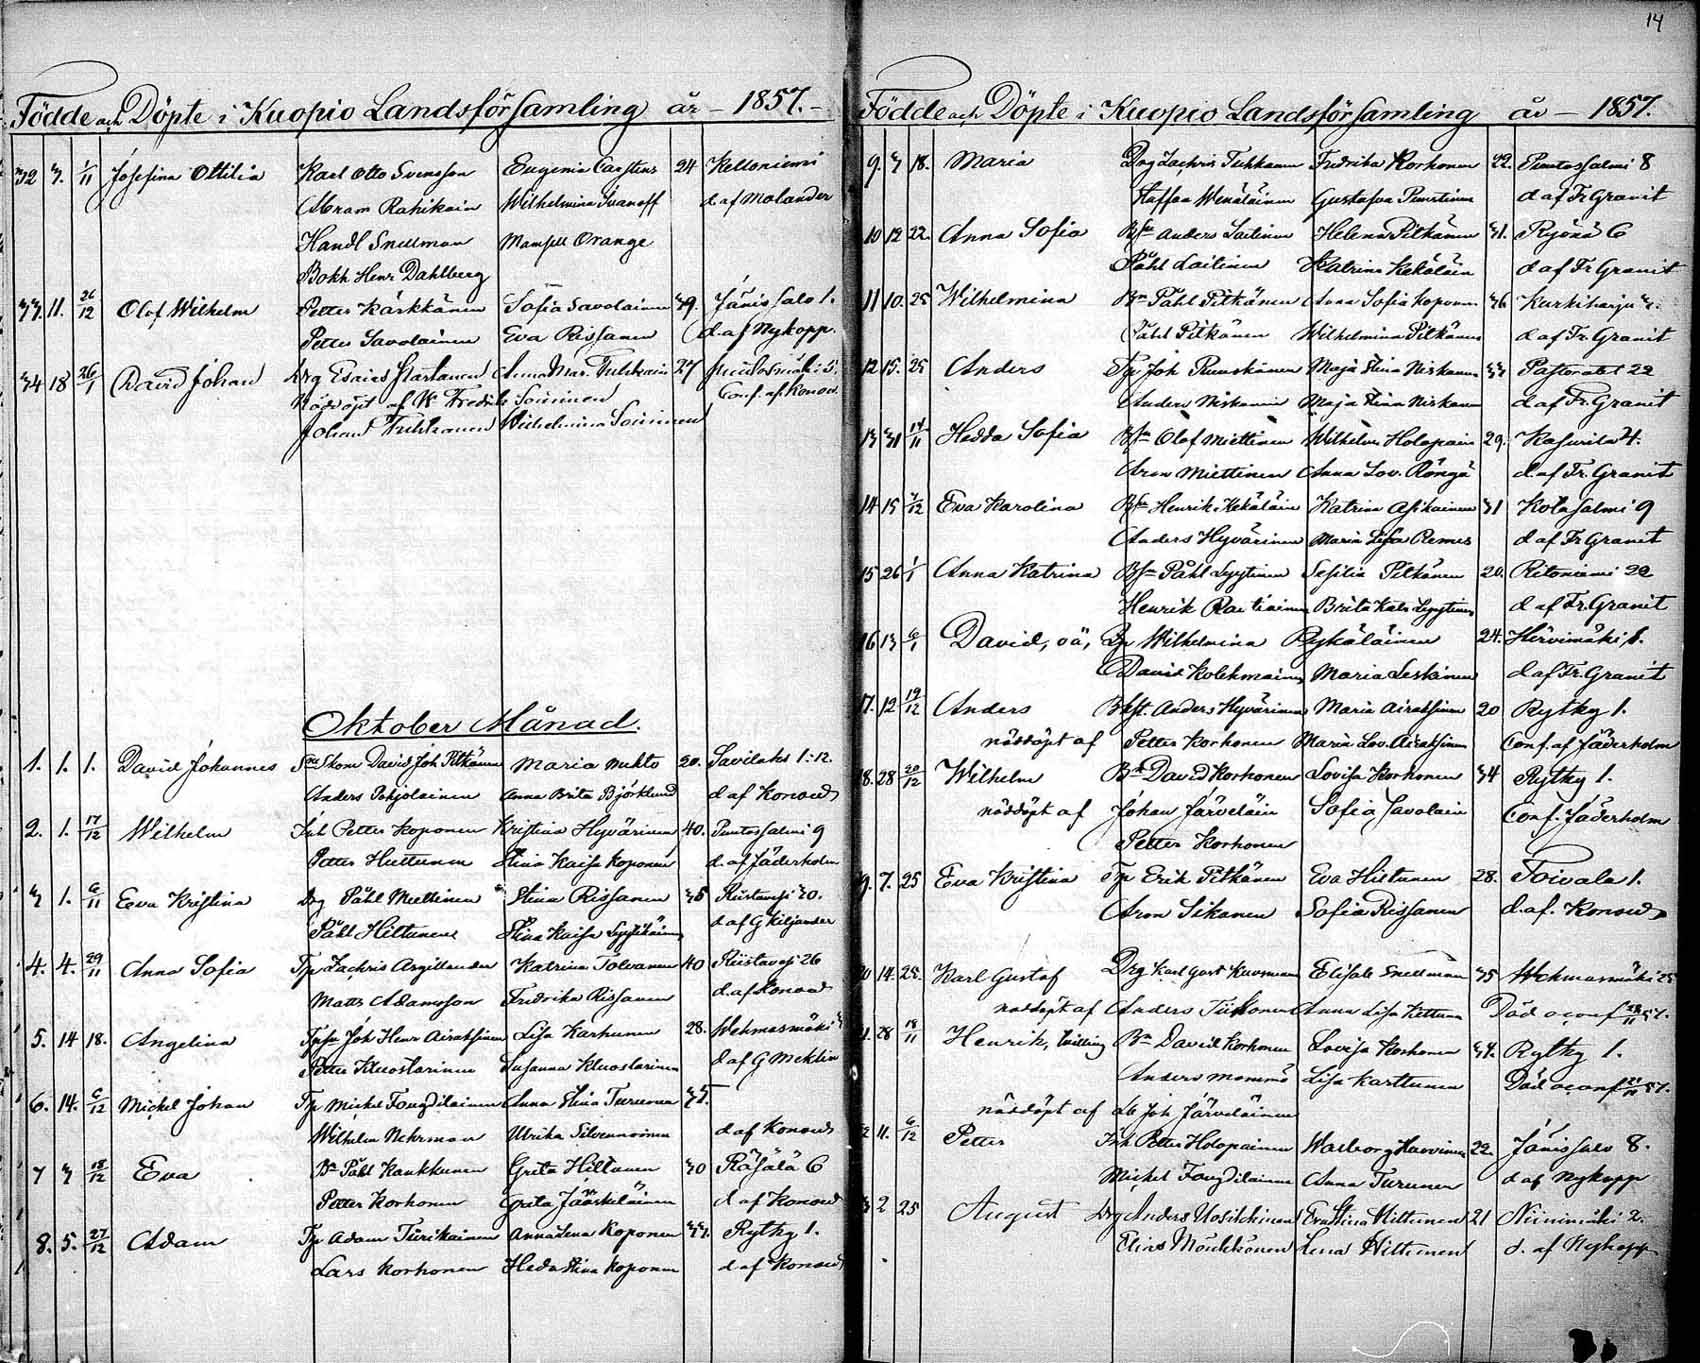 Födde och Döpte i Kuopio Landsförsamling år — 1857. —
32 3. 1/11 Josefina Ottilia Karl Otto Svensson Eugenia Carstens 24 Kelloniemi
Abram Rahikain Wilhelmina Ivanoff d af Molander
Handl Snellman Mamsell Orange
Bokh Henr Dahlberg
33. 11. 26/12 Olof Wilhelm Petter Kärkkänen Sofia Savolainen 39. Jänissalo 1.
Petter Savolainen Eva Rissanen d. af Nykopp.
34 18 26/1 David Johan Drg Esaias Anna Mar. 27
Nöddöpt af Fredrik Soininen Conf. af Konow.
Johan Wilhelmina Soininen
Oktober Månad.
1. 1. 1. David Johannes Skom David Joh Pitkänen Maria 20. Savilaks 1:12.
Anders Pohjolainen Anna Brita Björklund d af Konow
2. 1. 17/12 Wilhelm Inh Petter Koponen Kristina Hyvärinen 40. Puutossalmi 9
Petter Huttunen Stina Kaisa Koponen d. af Jäderholm
3 1. 6/11 Eva Kristina Drg Påhl Miettinen Stina Rissanen 35 Riistavesi 30.
Påhl Hiltunen Stina Kaisa d af G Kiljander
4. 4. 29/11 Anna Sofia Tp Zachris Argillander Katrina Tolvanen 40 Riistavesi 26
Matts Adamsson Fredrika Rissanen d. af Konow
5. 14 18. Angelina Joh Henr Airaksinen Lisa Karhunen 28. Wehmasmäki
Petter Kluostarinen Susanna Kluostarinen d af G Meklin
6. 14. 6/12 Michel Johan Tp Michel Fougdilainen Anna Stina Turunen 35.
Wilhelm Nehrman Ulrika Silvennoinen d af Konow
7 3 18/12 Eva Bn Påhl Kaukkunen Greta Hiltunen 30 Räsälä 6
Petter Korhonen Greta Jääskeläinen d af Konow
8. 5. 27/12 Adam Tp Adam Tiirikainen Anna Lena Koponen 33. Rytky 1.
Lars Korhonen Heda Stina Koponen d af Konow
14
Födde och Döpte i Kuopio Landsförsamling år — 1857.
9. 3 18. Maria Drg Zachris Tuhkanen Fredrika Korhonen 22. Puutossalmi 8
Staffan Wenäläinen Gustafva Puustinen d af Fr Granit
10 12 22. Anna Sofia Bsn Anders Laitinen Helena Pitkänen 31. Ryönä 6
Påhl Laitinen Katrina Kekäläin d af Fr Granit
11 10. 25 Wilhelmina Bn Påhl Pitkänen Anna Sofia Koponen 36 Kurkiharju 2.
Påhl Pitkänen Wilhelmina Pitkänen d af Fr. Granit
12 15. 25 Anders Tp Joh Ruuskänen Maja Stina Niskanen 33 Pastoratet 22
Anders Niskanen Maja Stina Niskanen d af Fr. Granit
13 31 14/11 Hedda Sofia Bsn Olof Miettinen Wilhelm. Holopain 29. Kasurila 4.
Aron Miettinen Anna Lov. Röngä d. af Fr. Granit
14 15 7/12 Eva Karolina Bsn Henrik Kekäläin Katrina Asikainen 31 Kotasalmi 9
Anders Hyvärinen Maria Lisa Remes d af Fr Granit
15 26 1/1 Anna Katrina Bsn Påhl Lyytinen Sesilia Pitkänen 20. Ritoniemi 22
Henrik Rautiainen Brita Kats Lyytinen d af Fr. Granit
16 13 6/1 David, oä, Pig Wilhelmina Ryhäläinen 24. Hirvimäki 1.
David Kolehmainen Maria Leskinen d af Fr. Granit
17. 12 19/12 Anders Anders Hyvärinen Maria Airaksinen 20 Rytky 1.
nöddöpt af Petter Korhonen Maria Lov. Airaksinen Conf. af Jäderholm
18. 28 20/12 Wilhelm Bn David Korhonen Lovisa Korhonen 34 Rytky 1.
nöddöpt af Johan Järveläin Sofia Savolain Conf. Jäderholm
Petter Korhonen
9. 7. 25 Eva Kristina Tp Erik Pitkänen Eva Hiltunen 28. Toivala 1.
Aron Sikanen Sofia Rissanen d. af. Konow
0 14. 25. Karl Gustaf Drg Karl Gust Kuosmanen Elisab Snellman 35 Wehmasmäki 25
nöddöpt af Anders Anna Lisa Död o conf 28/11 57.
1. 28 18/11 Henrik, tvilling Bn David Korhonen Lovisa Korhonen 34. Rytky 1.
Anders Mommo Lisa Karttunen Död o conf 21/11 57.
nöddöpt af Joh Järveläinen
2 11. 6/12 Petter Inh Petter Holopainen Walborg Harvinen 22 Jänissalo 8.
Michel Fougdilainen Anna Turunen d af Nykopp
3 2 25 August Drg Anders Uositkinen Eva Stina Hiltunen 21 Niinimäki 2.
Elias Mönkkönen Lena Hiltunen d. af Nykopp